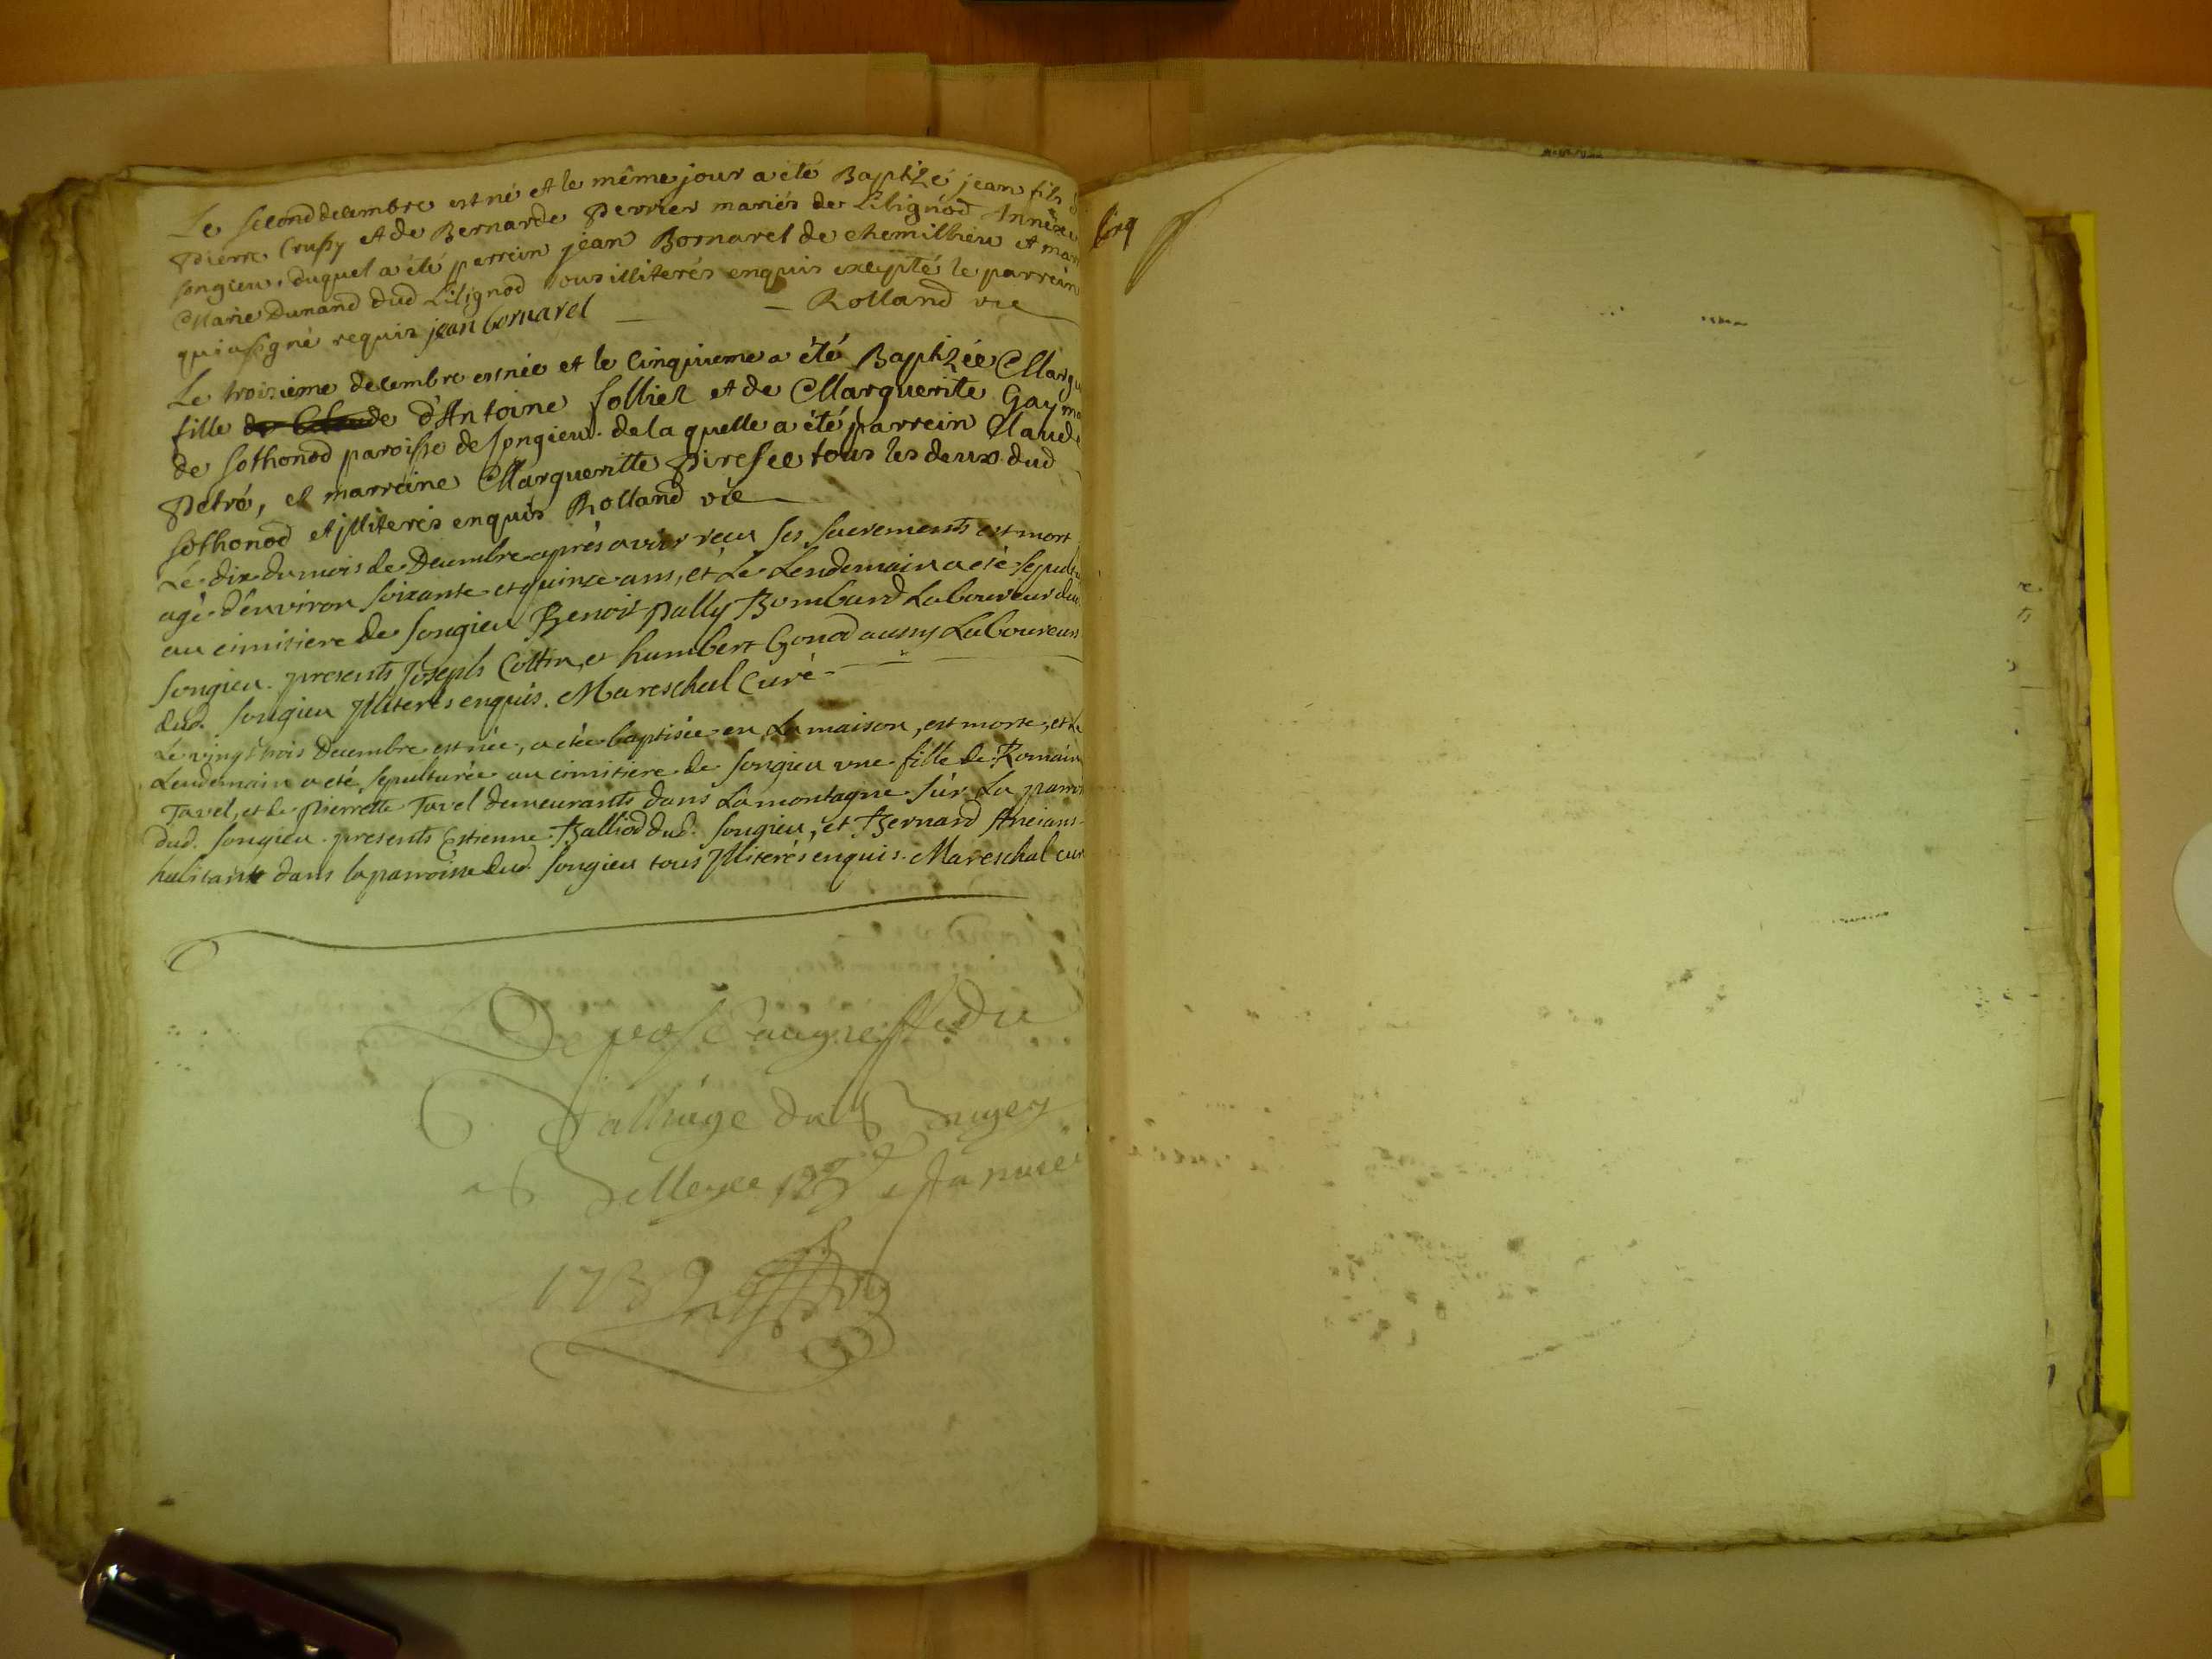 Le second decembre est né et le même jour a été Baptizé jean fils
pierre Crussy et de Bernarde perrier mariés de Lilignod Annéxe
songieu, duquel a été perrein jean Bornarel de chemillieu et mar
Marie Dunand dud Lilignod tous illiterés enquis excepté le parrein
qui a signé requis jean bornarel — — Rolland vic
Le troisième decembre est née et le cinquieme a été Baptizée Margu
fille d'Antoine solliet et de Marguerite Gay
de sothonod paroisse de songieu. de la quelle a été parrein Claude
petré, et marreine Margueritte tous les deux dud
sothonod et jlliterés enquis Rolland vic
Le dix du mois de Decembre après avoir recu ses sacrements est mort
agé d'environ soixante et quinze ans, et Le Lendemain a eté sepultu
au cimitiere de songieu Benoit pally Bombard Laboureur dud.
songieu. presents Joseph Cottin, et humbert Gonod aussy Laboureurs
dud. songieu Jlliterés enquis. Mareschal Curé
Le vingt trois Decembre est née, a etée baptisée en La maison, est morte, et Le
Lendemain a eté sepulturée au cimitiere de songieu une fille de Romain
Tavel, et de pierrette Tavel demeurants dans La montagne sur La parro
dud. songieu. presents Estienne Balliod dud. songieu, et Bernard Ancians
habitants dans la parroisse dud. songieu tous Jlliterés enquis. Mareschal cur
Deposé au greffe du
Balliage du Bugey
a Belleyce Janvie
173